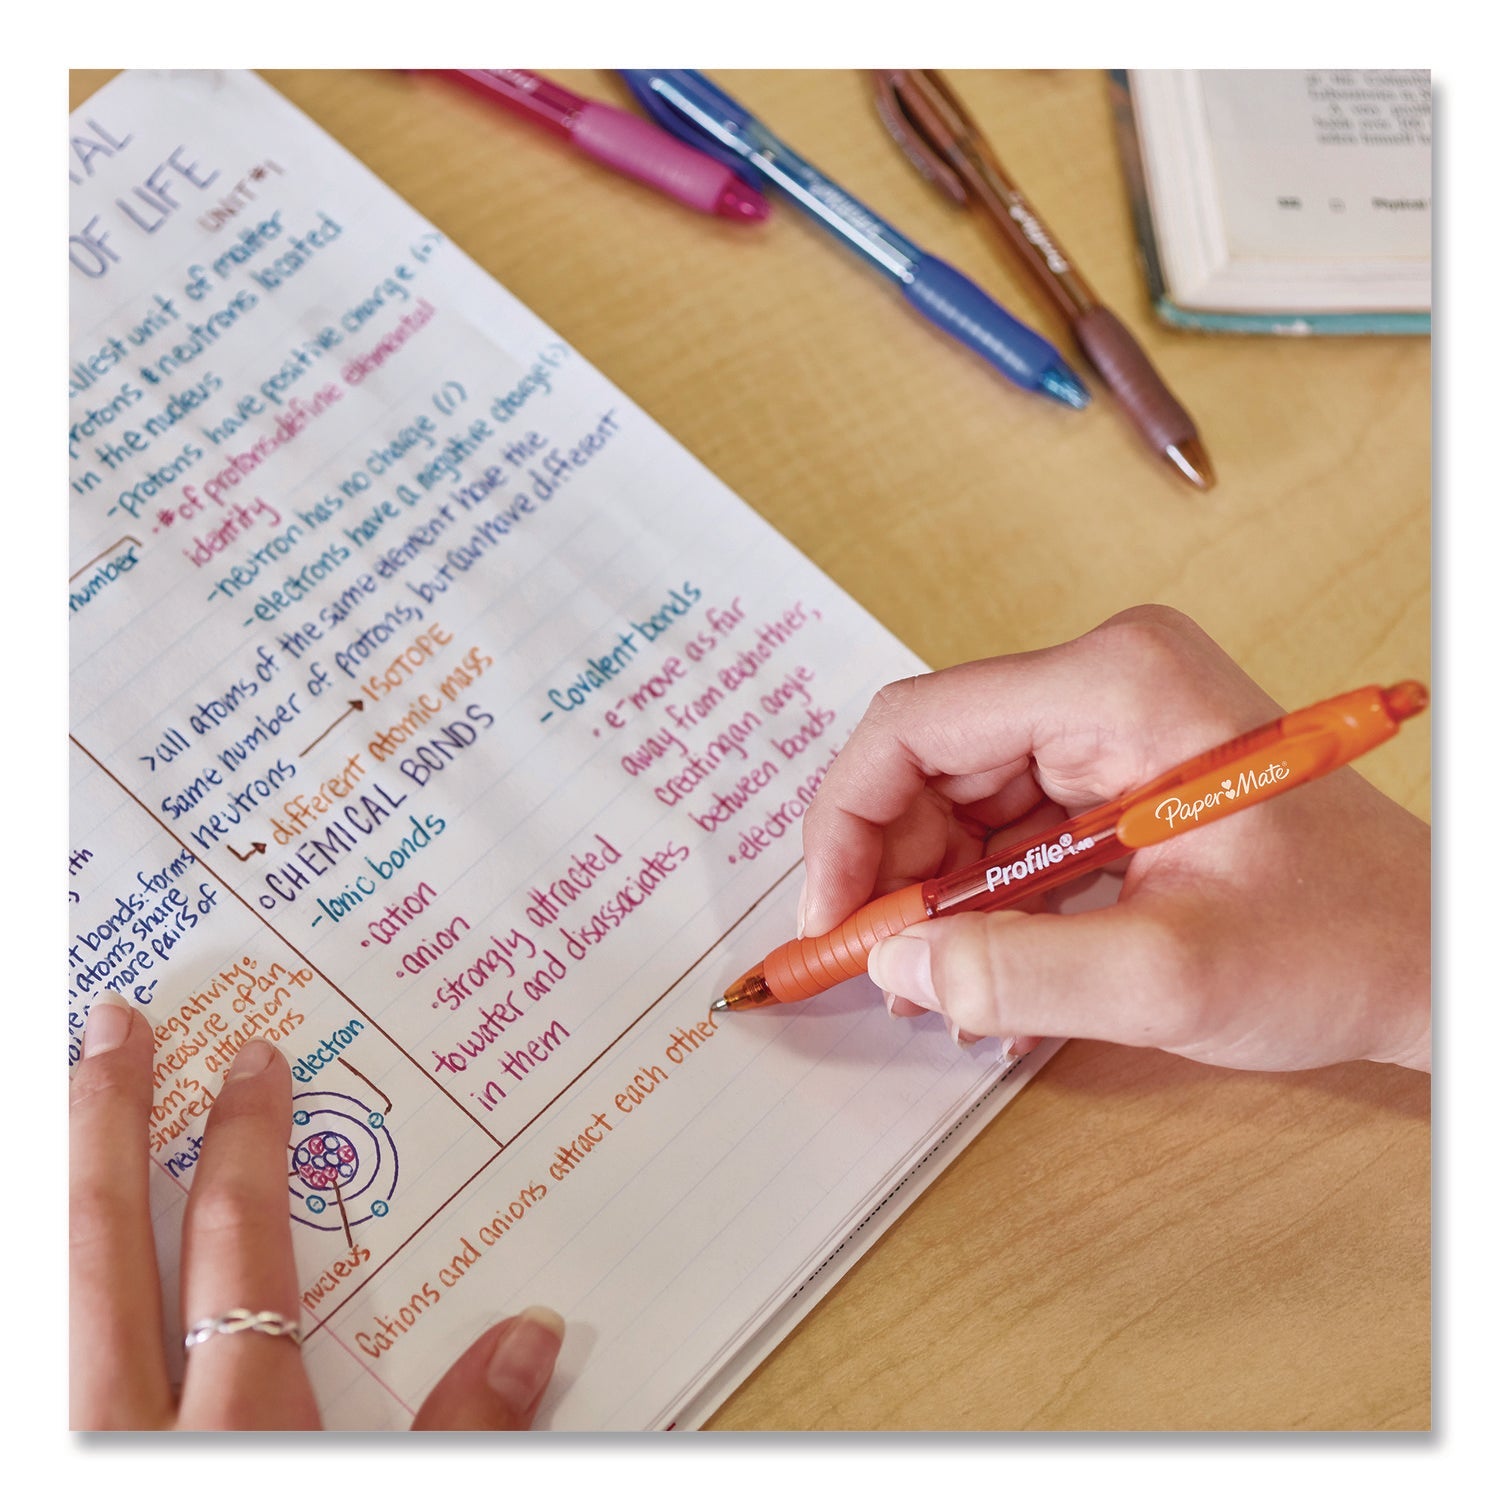 TAL
OF LIFE
UNIT #1
unit of matter
& neutrons located
in the nucleus
-protons have positive charge (+)
•# of protons define elemental
identity
number
-neutron has no charge (/)
-electrons have a negative charge (-)
>all atoms of the same element have the
same number of protons, but can have different
neutrons → ISOTOPE
different atomic mass
CHEMICAL BONDS
-Ionic bonds
•cation
•anion
•strongly attracted
to water and disassociates
in them
-Covalent bonds
•e⁻move as far
away from each other,
creating an angle
between bonds
bonds: forms
atoms share
more pairs of
e-
measure of an
attraction to
shared
electron
nucleus
Cations and anions attract each other
Profile® 1.4B
Paper Mate®